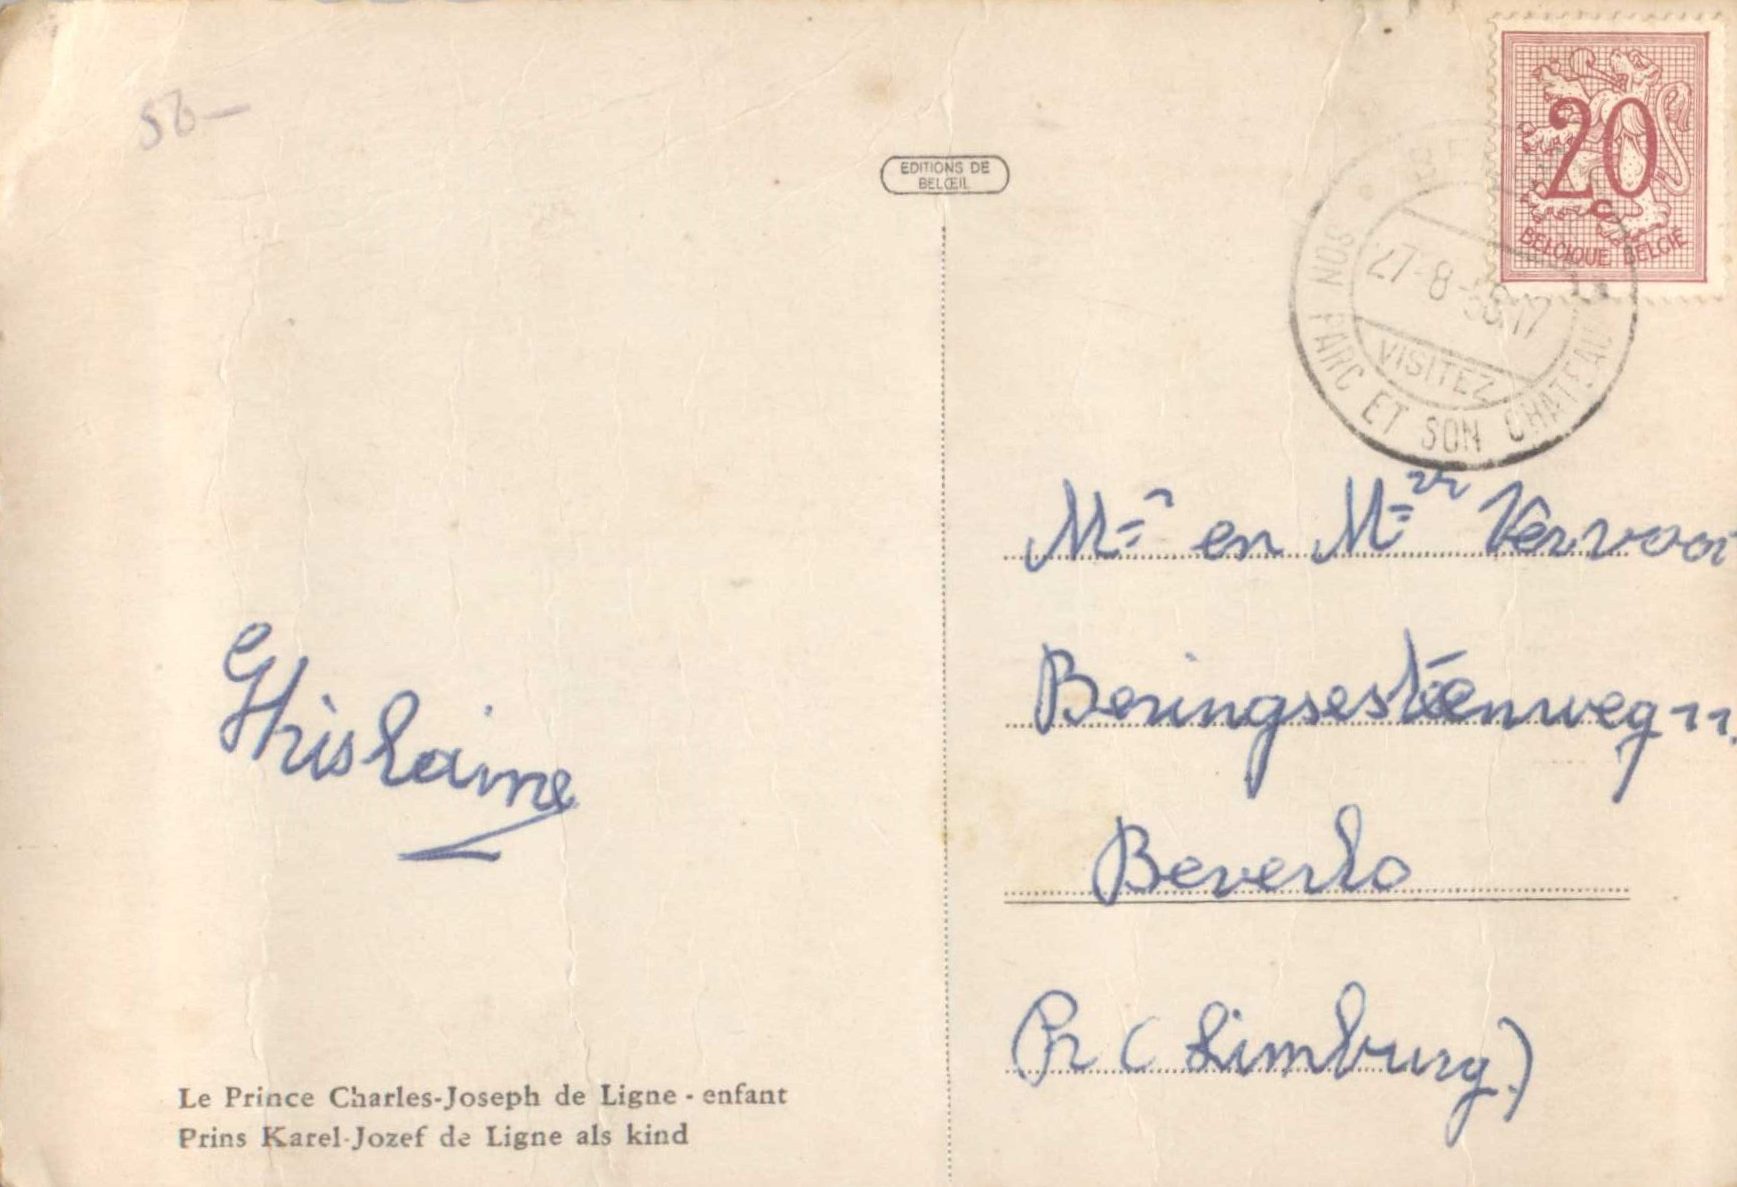 50-
EDITIONS DE
BELŒIL
20
C
BELGIQUE BELGIË
27-8-58-17
VISITEZ
SON PARC ET SON CHATEAU
Mr en Mevr Vervoor
Beringsesteenweg 11
Beverlo
Pr (Limburg)
Ghislaine
Le Prince Charles-Joseph de Ligne - enfant
Prins Karel-Jozef de Ligne als kind